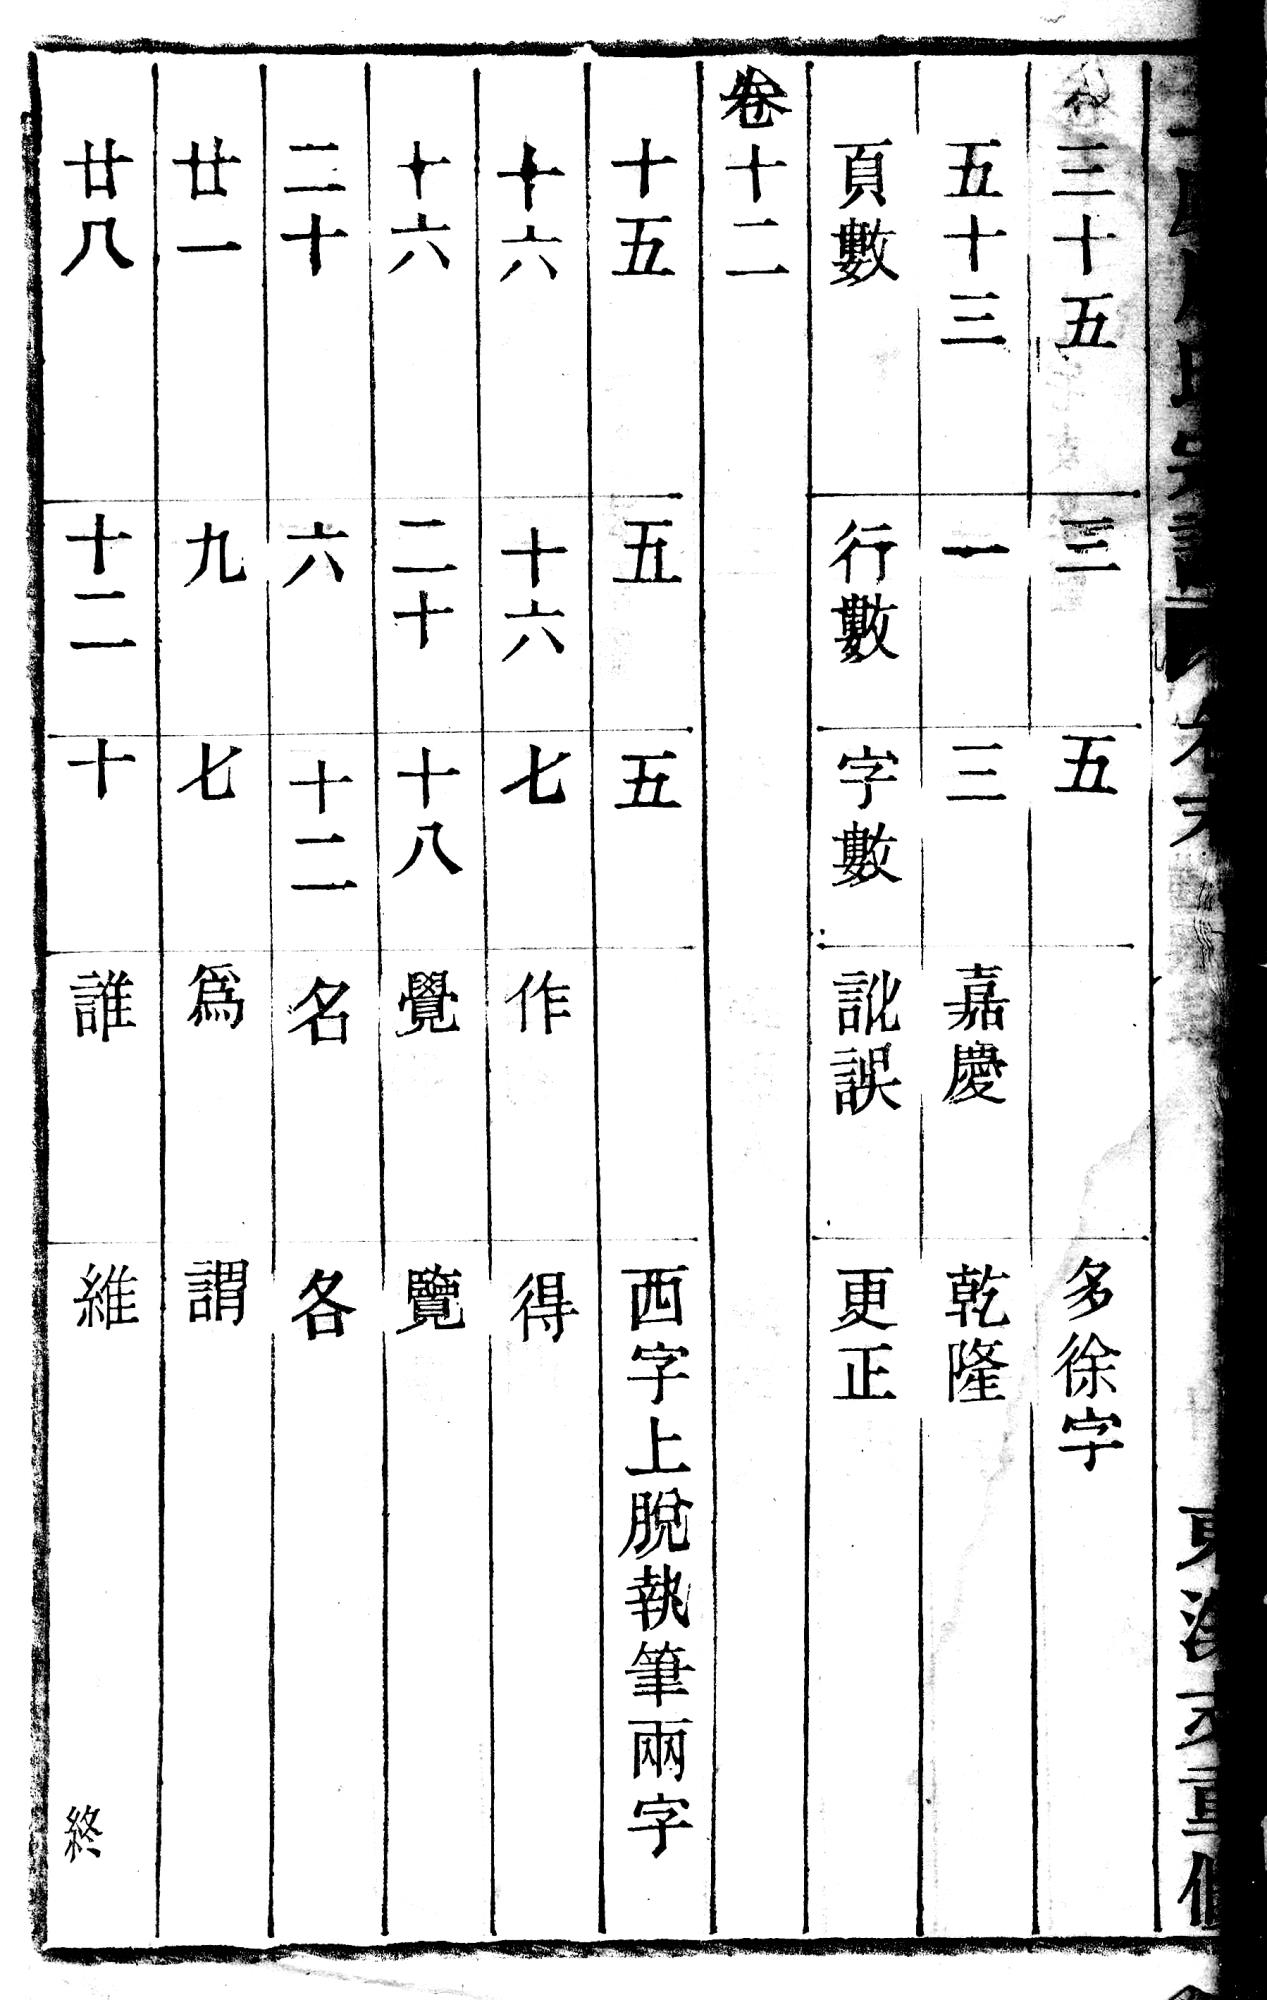 三十五 三 五 多徐字
五十三 一 三 嘉慶 乾隆
頁數 行數 字數 訛誤 更正
卷十二
十五 五 五 西字上脫執筆兩字
十六 十六 七 作 得
十六 二十 十八 覺 覽
二十 六 十二 名 各
廿一 九 七 爲 謂
廿八 十二 十 誰 維
終